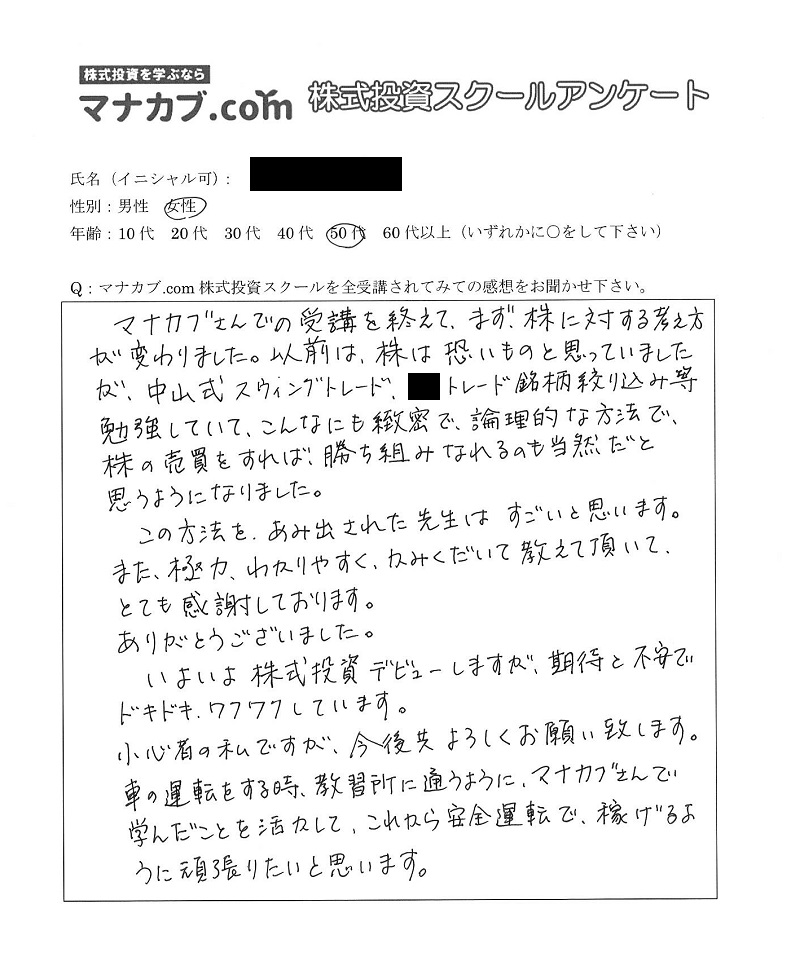 株式投資を学ぶなら
マナカブ.com 株式投資スクールアンケート
氏名（イニシャル可）：
性別：男性 女性
年齢：10代 20代 30代 40代 50代 60代以上（いずれかに〇をして下さい）
Q：マナカブ.com 株式投資スクールを全受講されてみての感想をお聞かせ下さい。
マナカブさんでの受講を終えて、まず、株に対する考え方
が変わりました。以前は、株は恐いものと思っていました
が、中山式スウィングトレード、トレード銘柄絞り込み等
勉強していて、こんなにも緻密で、論理的な方法で、
株の売買をすれば、勝ち組みなれるのも当然だと
思うようになりました。
この方法を、あみ出された先生はすごいと思います。
また、極力、わかりやすく、かみくだいて教えて頂いて、
とても感謝しております。
ありがとうございました。
いよいよ株式投資デビューしますが、期待と不安で
ドキドキ、ワクワクしています。
小心者の私ですが、今後共よろしくお願い致します。
車の運転をする時、教習所に通うように、マナカブさんで
学んだことを活かして、これから安全運転で、稼げるよ
うに頑張りたいと思います。